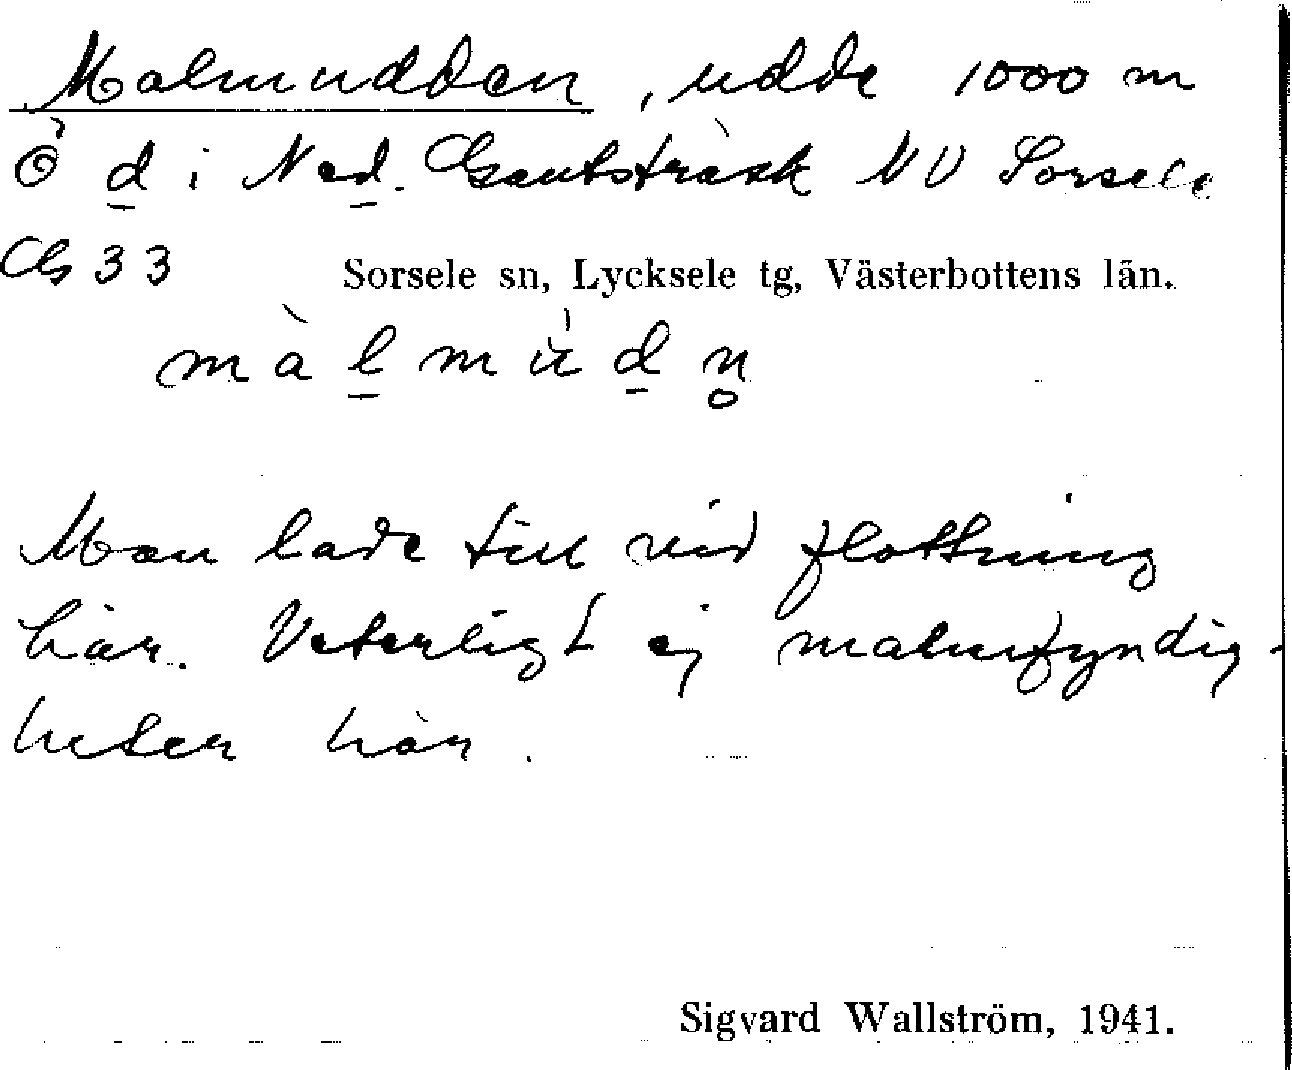 Malmudden, udde 1000 m
Ö d i Ned. Gautsträsk NV Sorsele
G 33 Sorsele sn, Lycksele tg, Västerbottens län.
màlmu̇̀dn̥
Man lade till vid flottning
här. Veterligt ej malmfyndig-
heter här.
Sigvard Wallström, 1941.